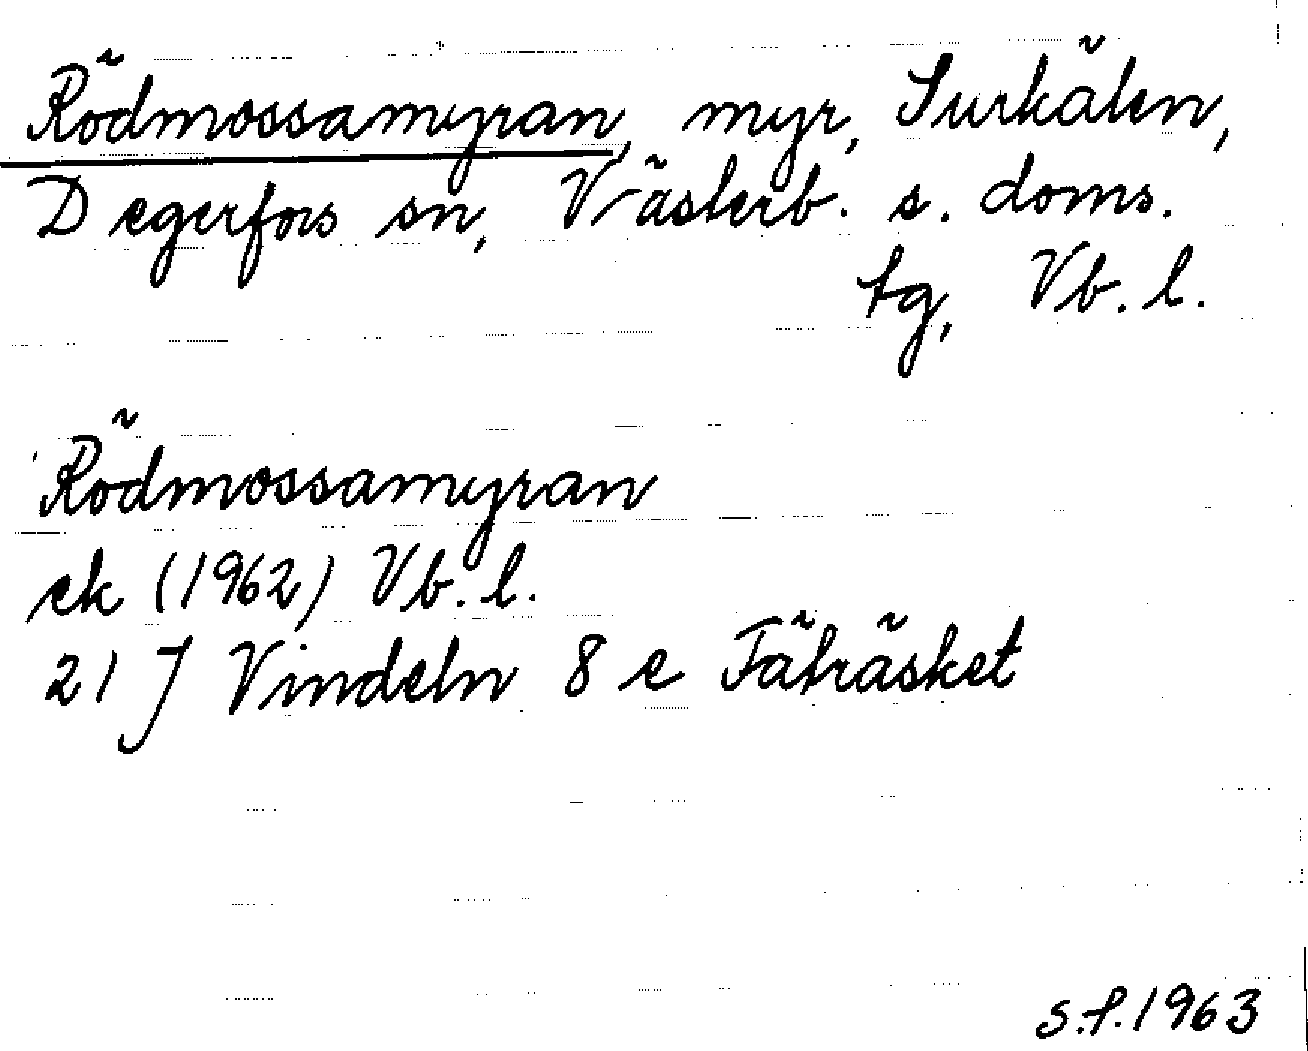 Rödmossamyran, myr, Surkälen,
Degerfors sn, Västerb. s. doms.
tg, Vb. l.
Rödmossamyran
ek (1962) Vb. l.
21 J Vindeln 8 e Fäträsket
s.f. 1963